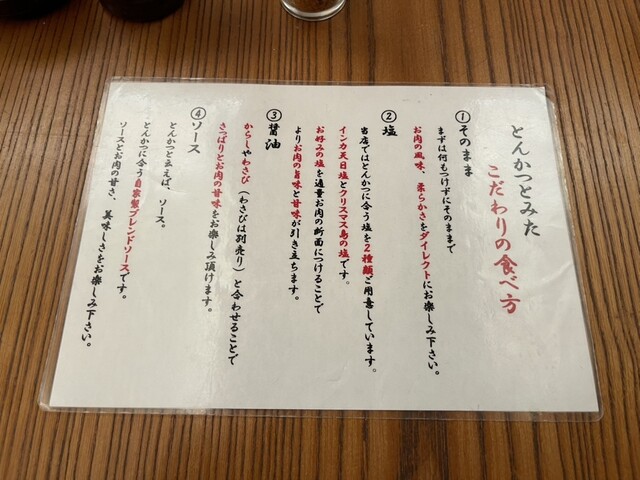 とんかつとみた
こだわりの食べ方
①そのまま
まずは何もつけずにそのままで
お肉の風味、柔らかさをダイレクトにお楽しみ下さい。
②塩
当店ではとんかつに合う塩を2種類ご用意しています。
インカ天日塩とクリスマス島の塩です。
お好みの塩を適量お肉の断面につけることで
よりお肉の旨味と甘味が引き立ちます。
③醤油
からしやわさび（わさびは別売り）と合わせることで
さっぱりとお肉の甘味をお楽しみ頂けます。
④ソース
とんかつと言えば、ソース。
とんかつに合う自家製ブレンドソースです。
ソースとお肉の甘さ、美味しさをお楽しみ下さい。